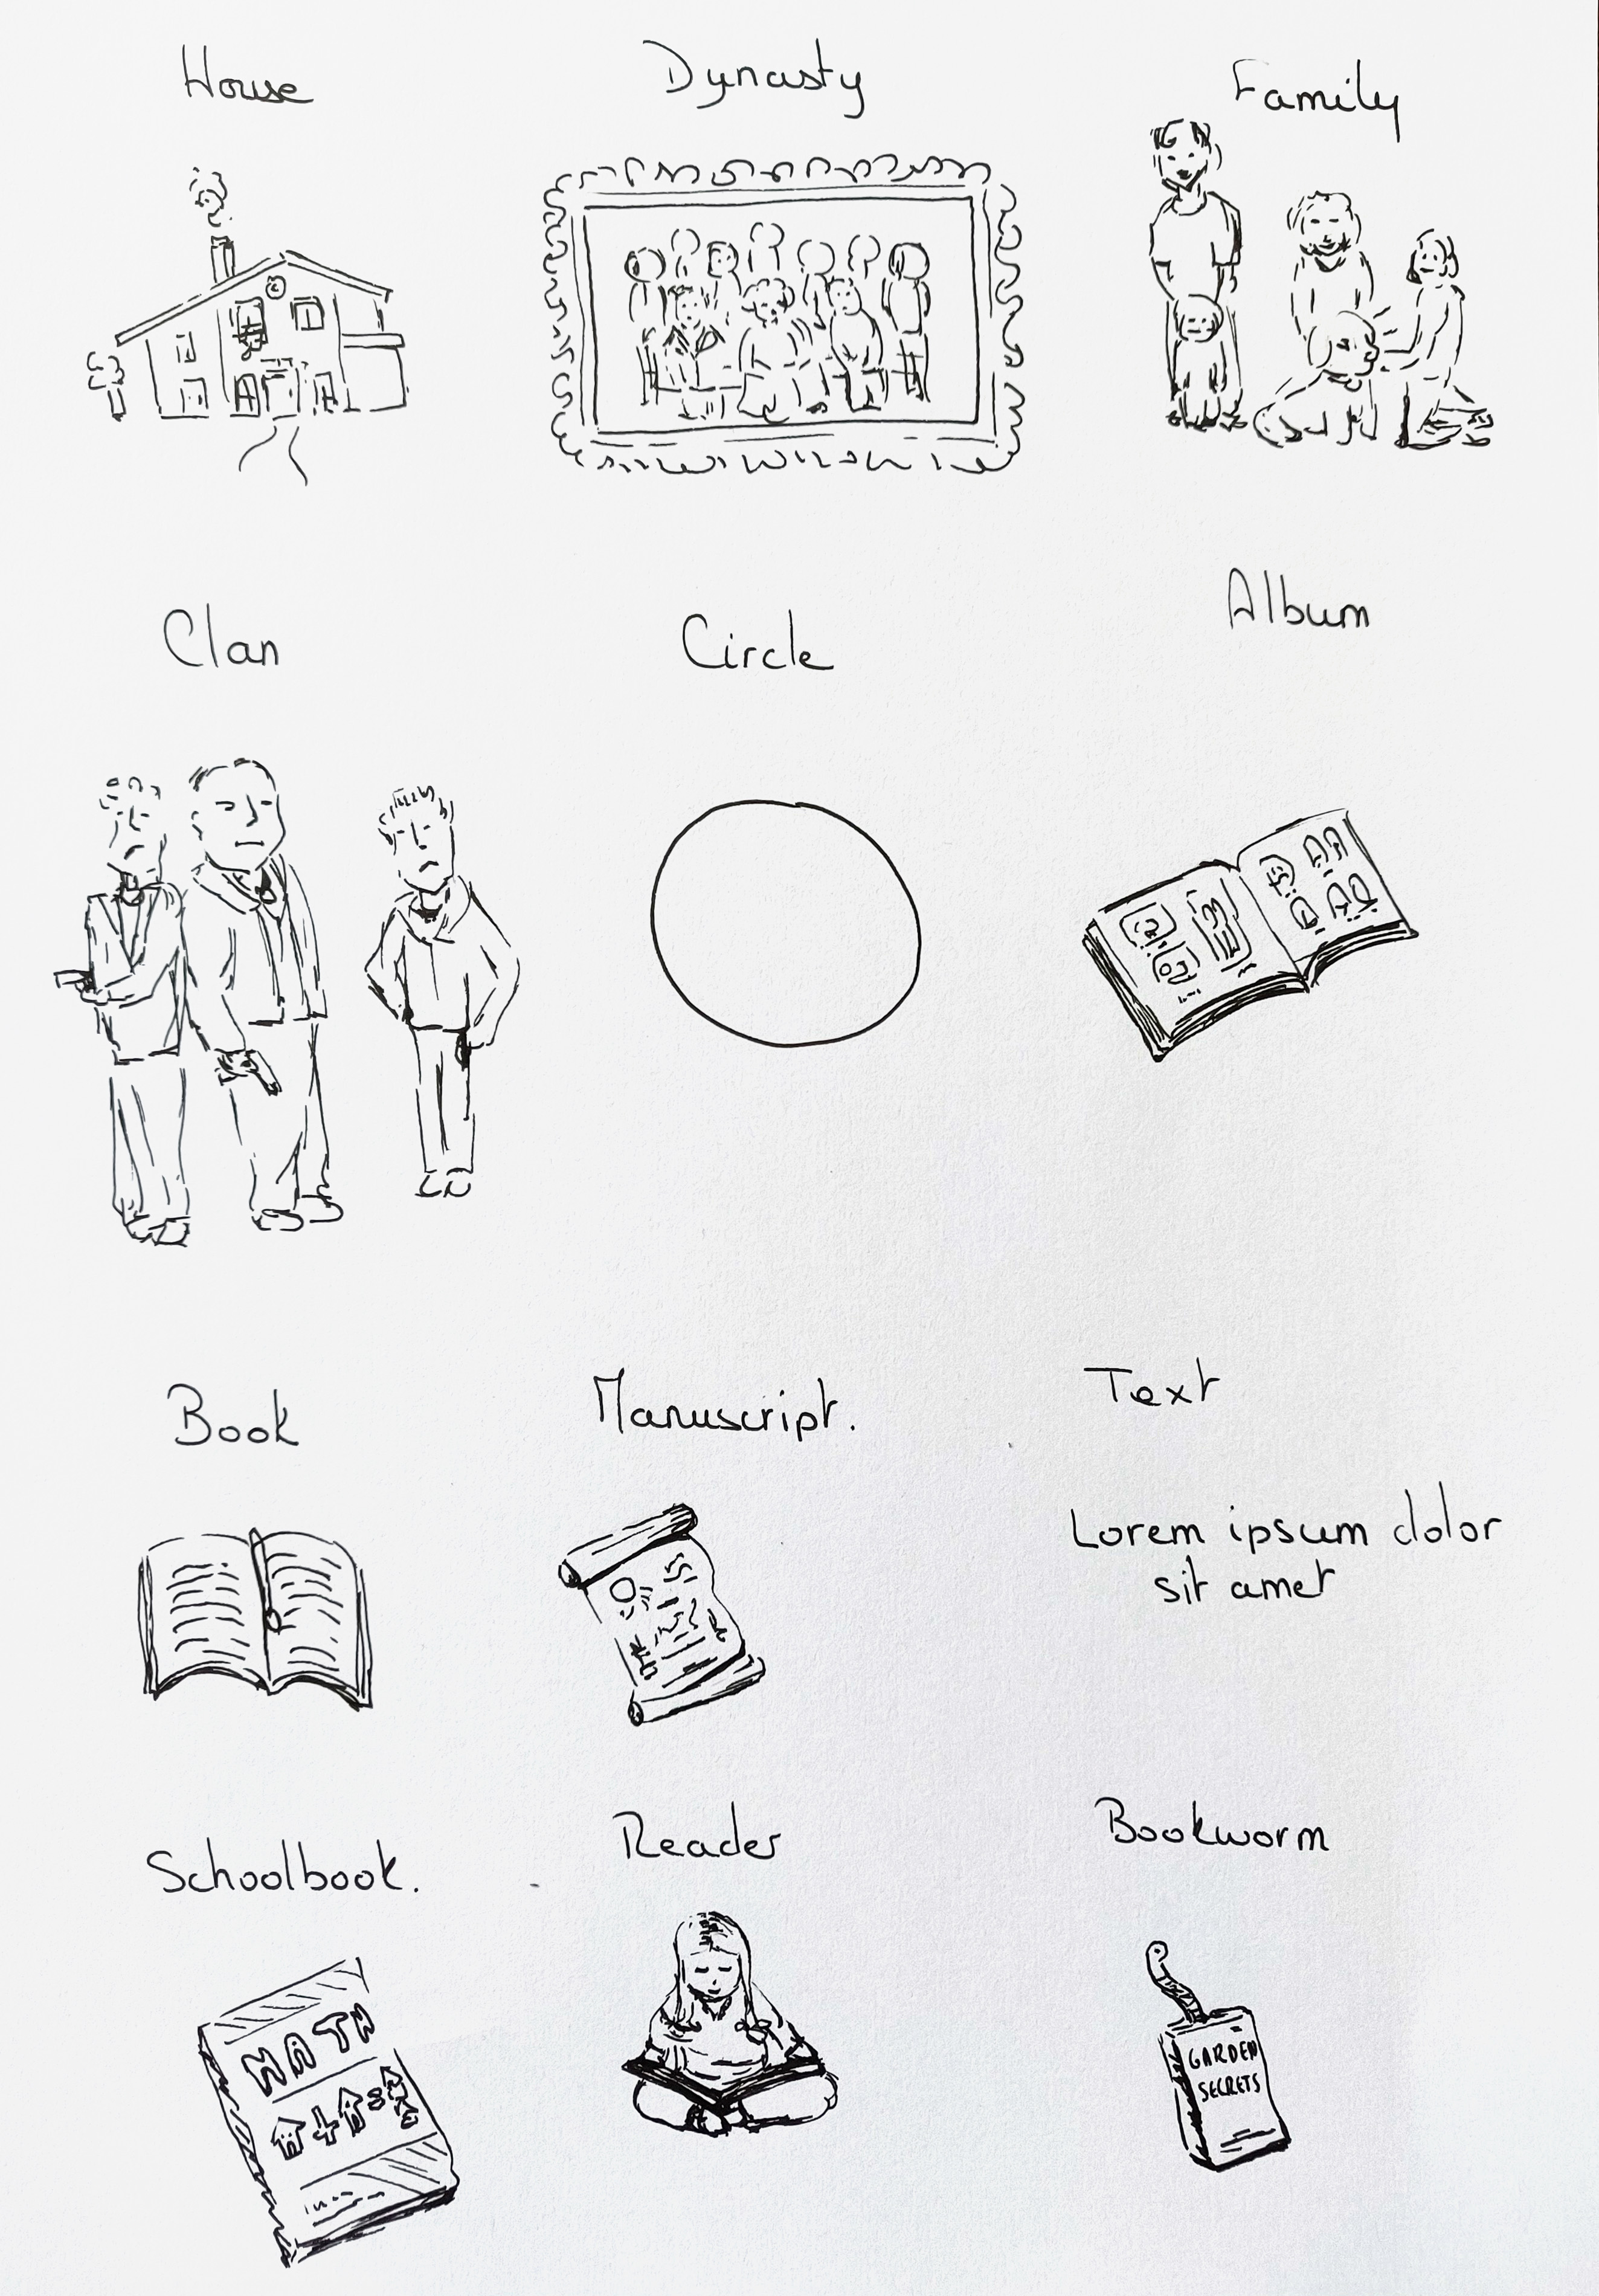 House
Dynasty
Family
Clan
Circle
Album
Book
Manuscript.
Text
Lorem ipsum dolor
sit amet
Schoolbook.
Reader
Bookworm
MATH
GARDEN
SECRETS